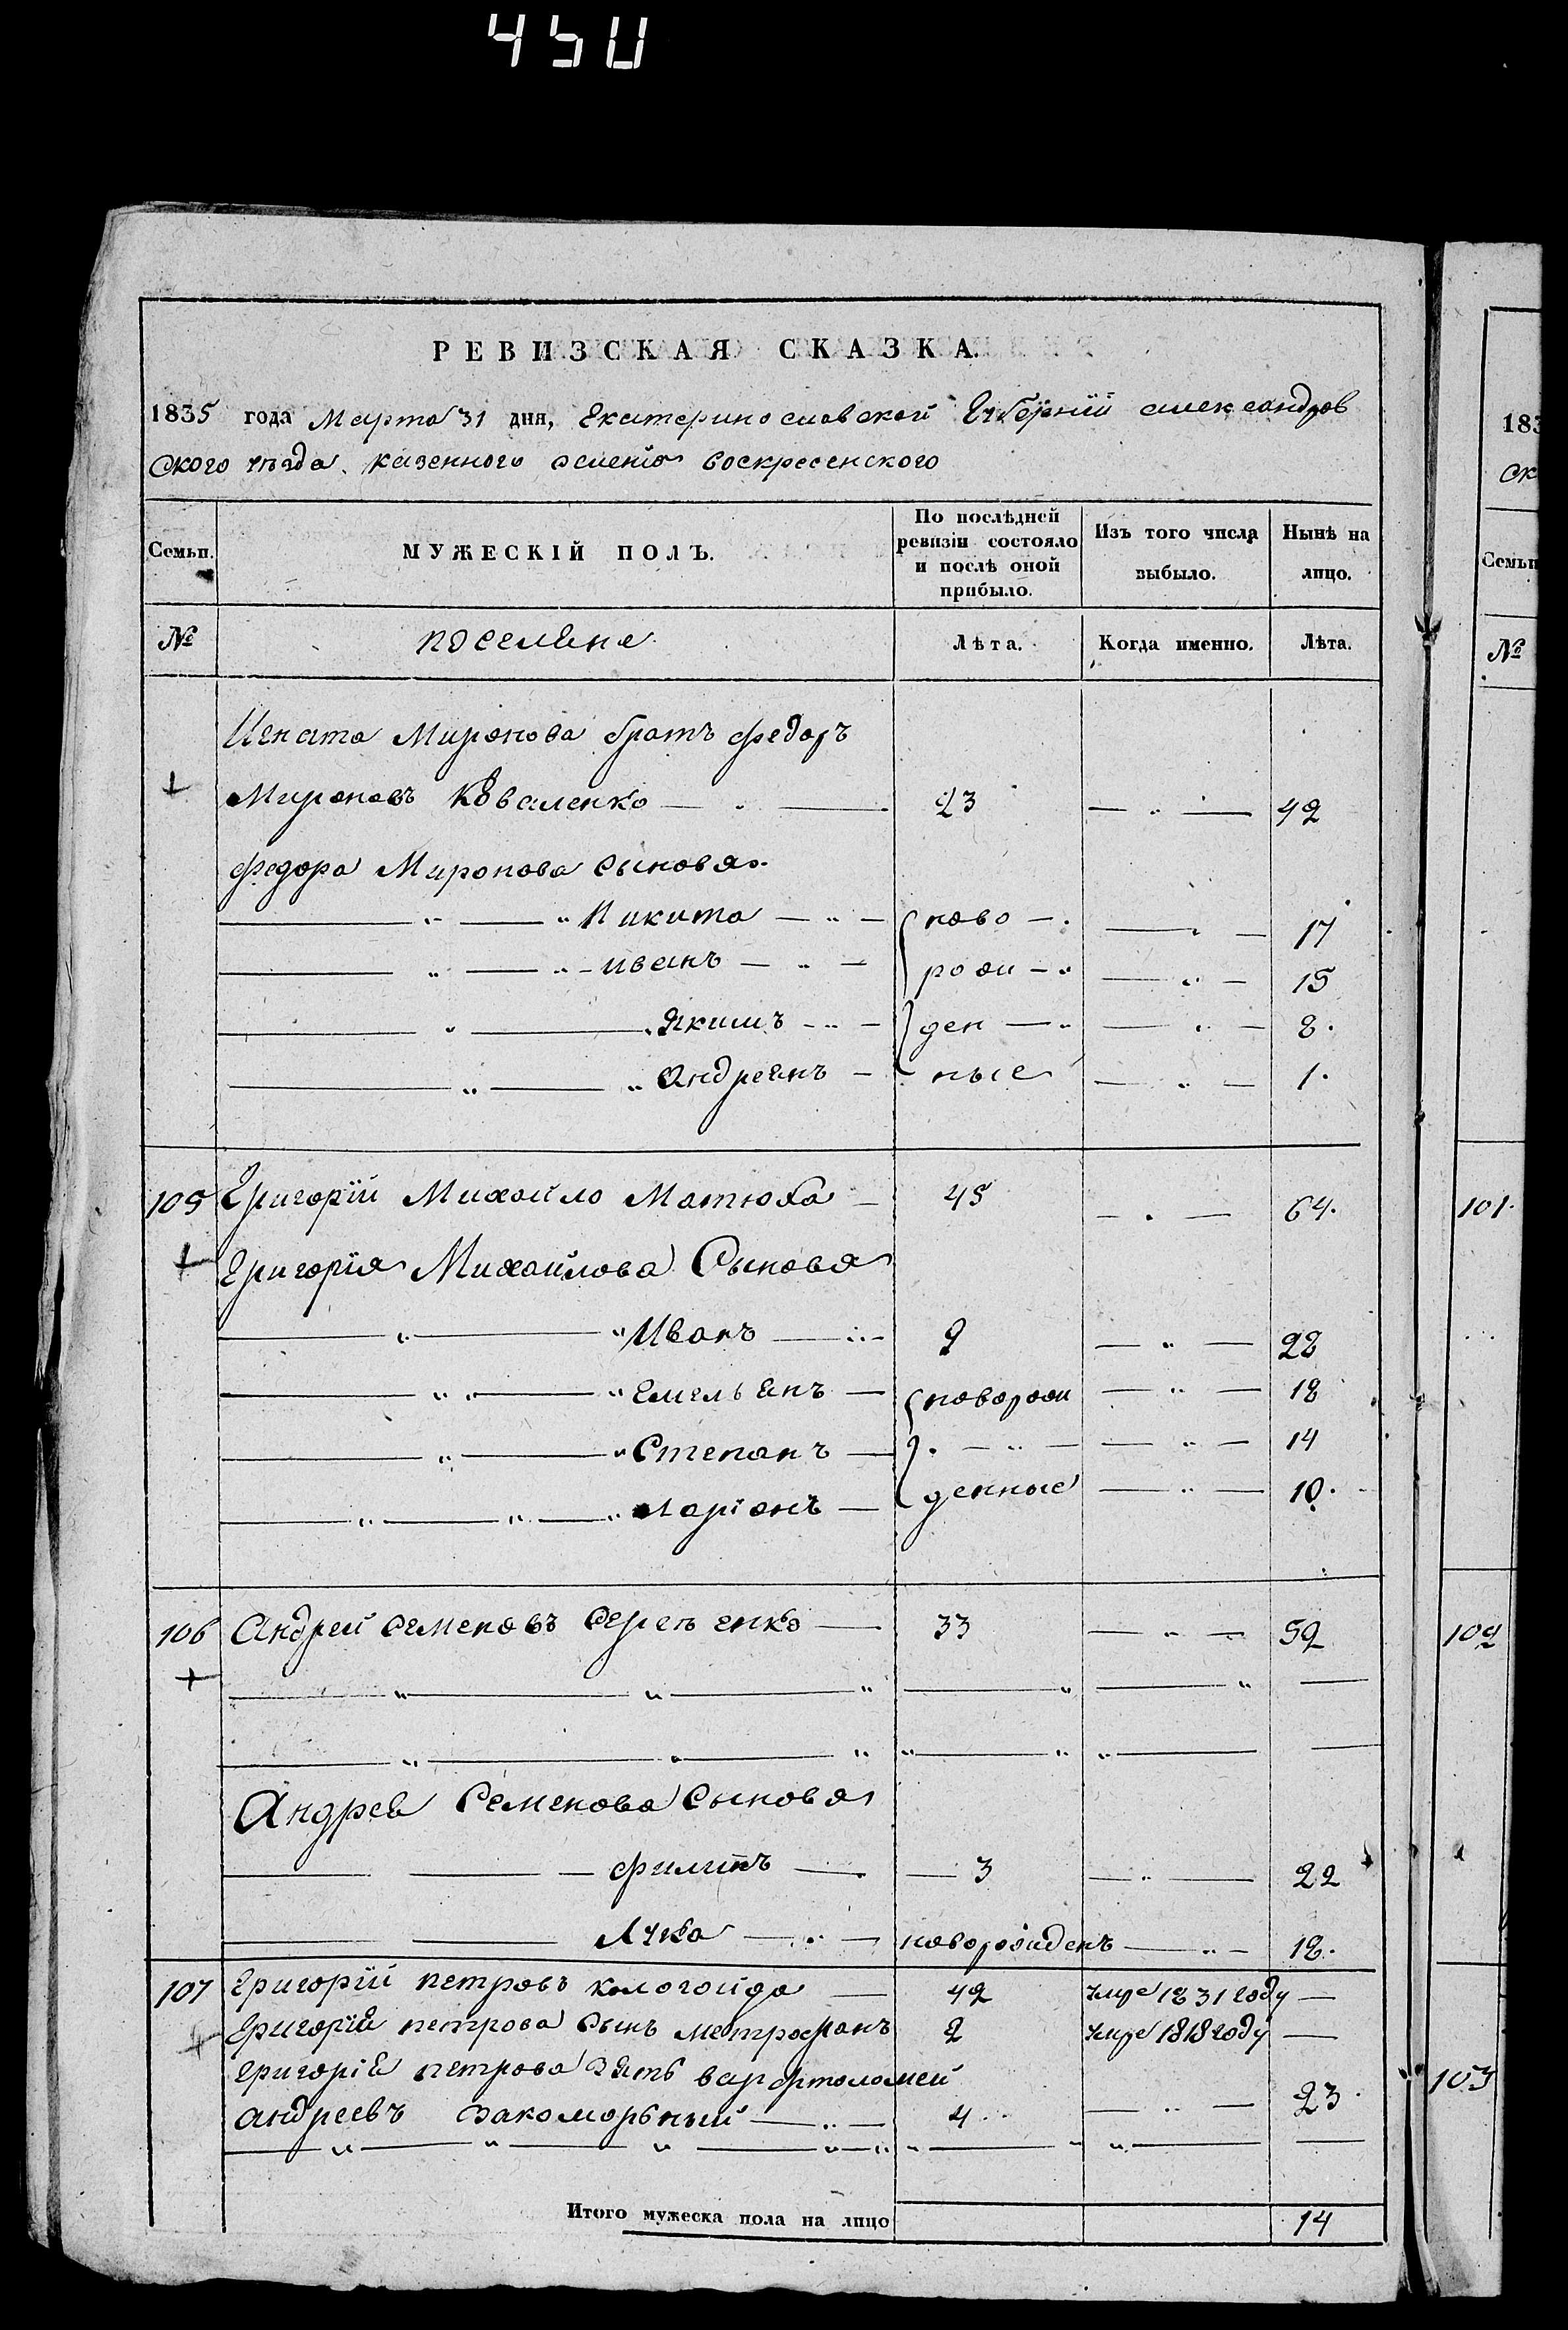 450
РЕВИЗСКАЯ СКАЗКА.
1835 года Марта 31 дня, Екатеринославской Губернїи александров
ского уѣзда казенного селенїя воскресенского
Семьи. МУЖЕСКІЙ ПОЛЪ. По послѣдней ревизіи состояло и послѣ оной прибыло. Изъ того числа выбыло. Нынѣ на лицо.
№ поселяне Лѣта. Когда именно. Лѣта.
Игната Миронова братъ федоръ
+ Мироновъ Коваленко — 23 — 42
федора Миронова сыновя
Никита — ново — 17
иванъ — рож — 15
Якимъ — ден — 8.
андреянъ — ные — 1.
105 Григорїй Михайло Матюха — 45 — 64.
+ Григорїя Михайлова Сыновя
Иванъ — 9 — 28
Емельянъ — новорож — 18
Степанъ — 14
Ларїонъ — денные — 10.
106 Андрей семеновъ сергѣенко — 33 — 52
+
Андрея Семенова Сыновя
филипъ — 3 — 22
Лука — новорожденъ — 18.
107 Григорїй петровъ кологойда — 42 умре 1831 году —
+ Григорїя петрова сынъ метрофанъ 2 умре 1818 году —
григорїя петрова зять варфтоломей
андреевъ закоморный — 4 — 23.
Итого мужеска пола на лицо 14
183
ск
Семьи
№
101.
102
103